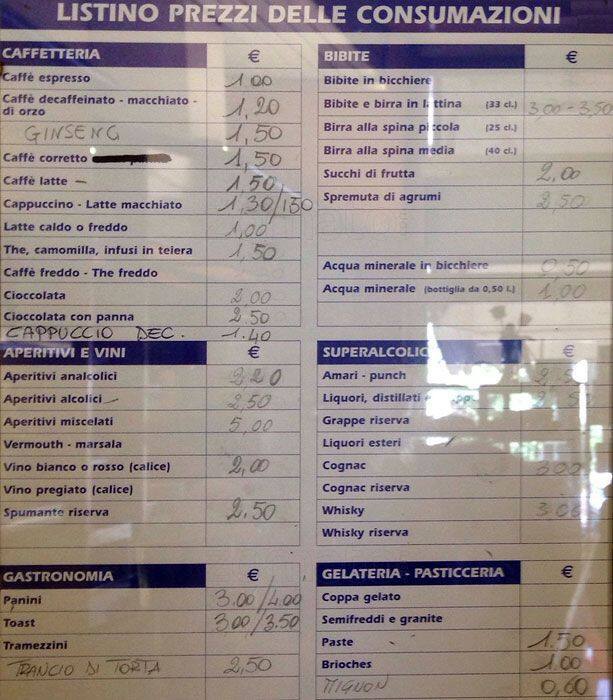 LISTINO PREZZI DELLE CONSUMAZIONI
CAFFETTERIA €
Caffè espresso 1,00
Caffè decaffeinato - macchiato -
di orzo 1,20
GINSENG 1,50
Caffè corretto 1,50
Caffè latte - 1,50
Cappuccino - Latte macchiato 1,30/150
Latte caldo o freddo 1,00
The, camomilla, infusi in teiera 1,50
Caffè freddo - The freddo
Cioccolata 2,00
Cioccolata con panna 2.50
CAPPUCCIO DEC. 1.40
APERITIVI E VINI €
Aperitivi analcolici 2,20
Aperitivi alcolici 2,50
Aperitivi miscelati 5,00
Vermouth - marsala
Vino bianco o rosso (calice) 2,00
Vino pregiato (calice)
Spumante riserva 2.50
GASTRONOMIA €
Panini 3.00/4.00
Toast 3.00/3.50
Tramezzini
TRANCIO DI TORTA 2,50
BIBITE €
Bibite in bicchiere
Bibite e birra in lattina (33 cl.) 3,00-3,50
Birra alla spina piccola (25 cl.)
Birra alla spina media (40 cl.)
Succhi di frutta 2,00
Spremuta di agrumi 2,50
Acqua minerale in bicchiere 0,50
Acqua minerale (bottiglia da 0,50 l.) 1,00
SUPERALCOLIC €
Amari - punch 2,50
Liquori, distillati
Grappe riserva
Liquori esteri
Cognac 3,00
Cognac riserva
Whisky 3,00
Whisky riserva
GELATERIA - PASTICCERIA €
Coppa gelato
Semifreddi e granite
Paste 1.50
Brioches 1.00
MIGNON 0,60